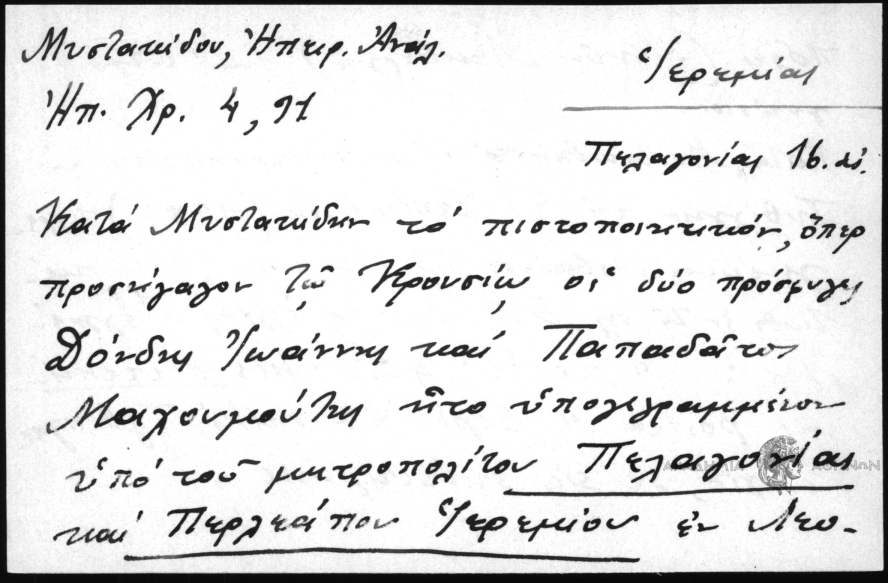 Μυστακίδου, Ἠπειρ. Ἀνάλ.
Ἠπ. Χρ. 4, 91
Ἱερεμίας
Πελαγονίας 16. αἰ.
Κατά Μυστακίδην τό πιστοποιητικόν, ὅπερ
προσήγαγον τῷ Κρουσίῳ οἱ δύο πρόσφυγες
Δόνδης Ἰωάννης καί Παπαδᾶτος
Μαχουμούτης ἦτο ὑπογεγραμμένον
ὑπό τοῦ μητροπολίτου Πελαγονίας
καί Περλεάπου Ἱερεμίου ἐν Λευ-
ΑΚΑΔΗΜΙΑ ΑΘΗΝΩΝ